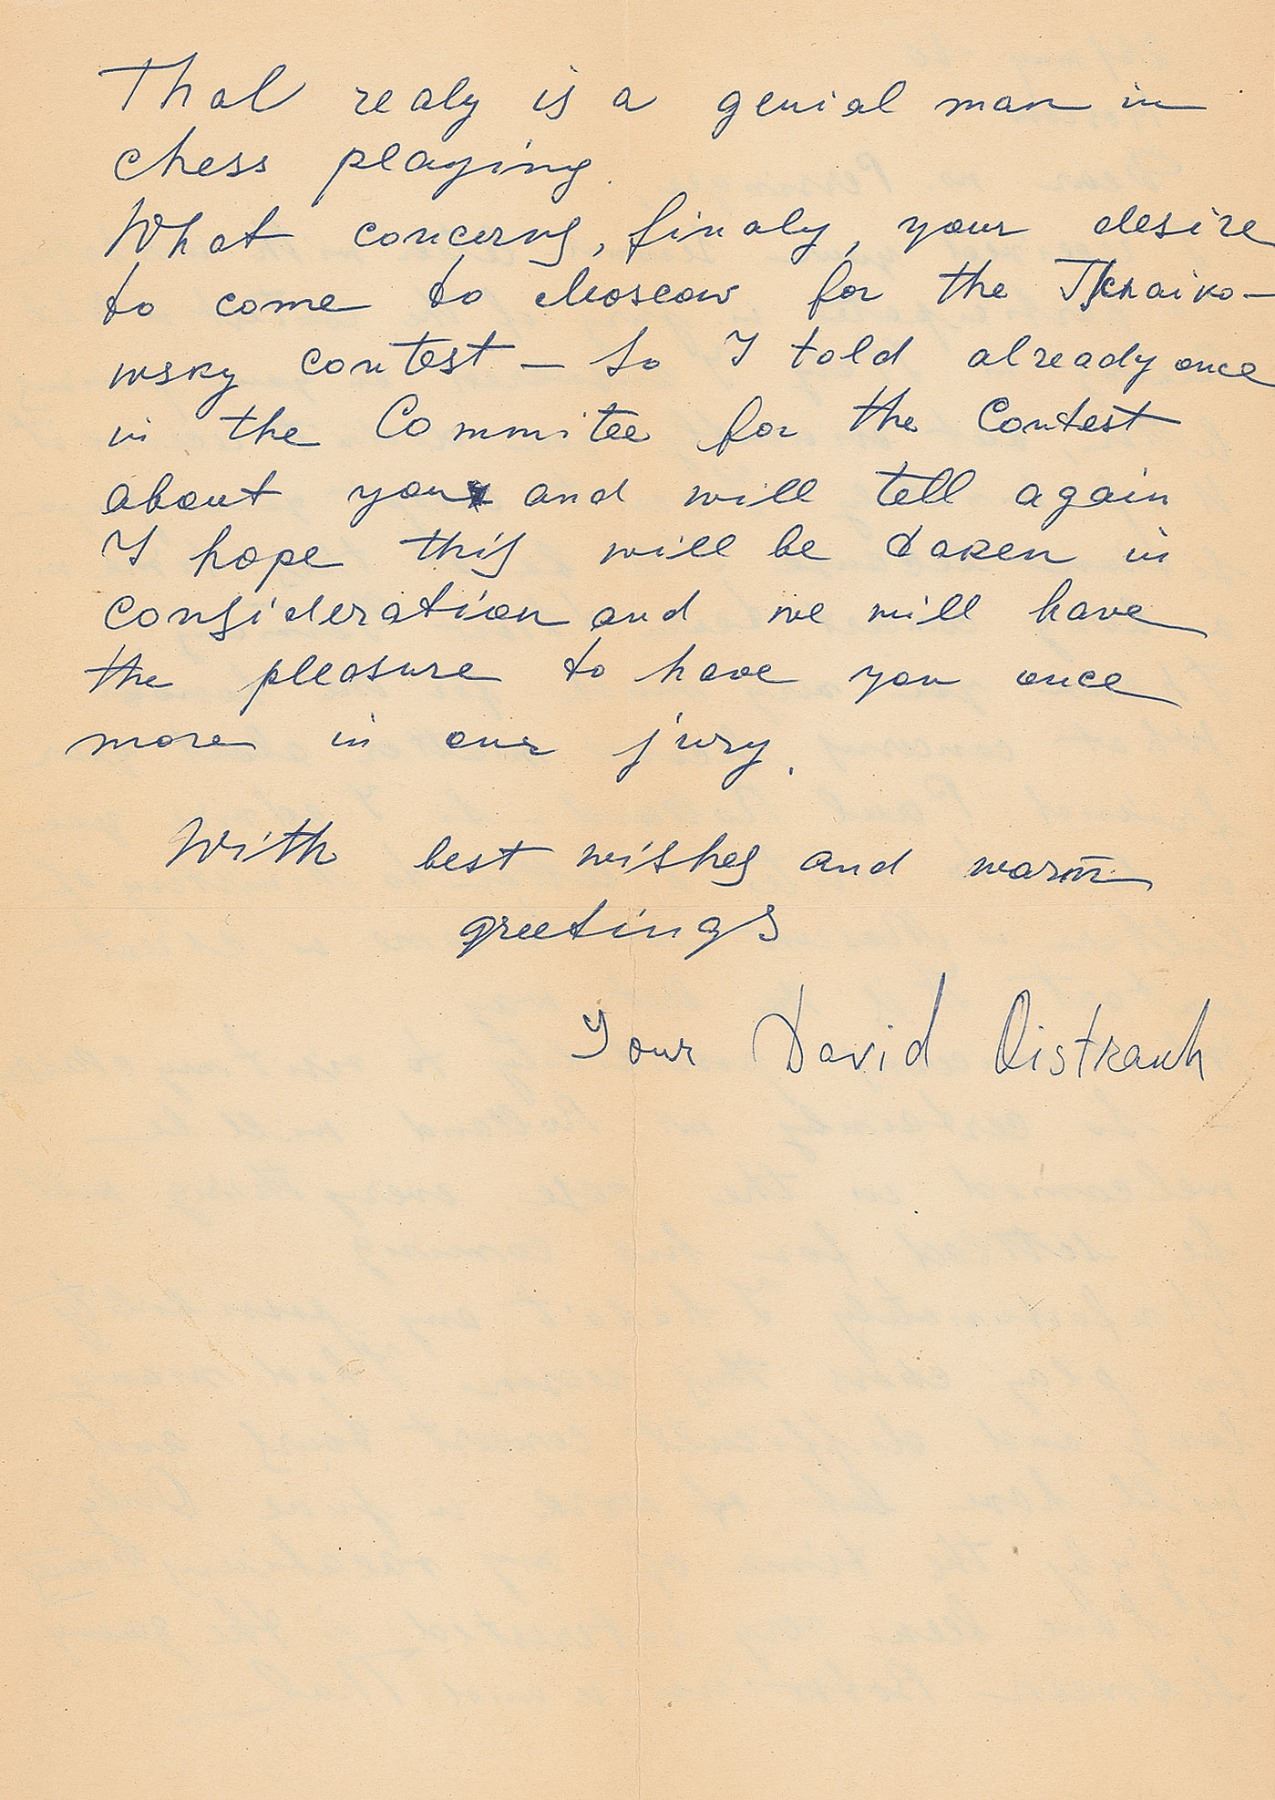 Thal realy is a genial man in
chess playing.
What concerns, finaly, your desire
to come to Moscow for the Tchaiko-
wsky contest – So I told already once
in the Commitee for the Contest
about you and will tell again
I hope this will be taken in
consideration and we will have
the pleasure to have you once
more in our jury.
With best wishes and warm
greetings
Your David Oistrakh